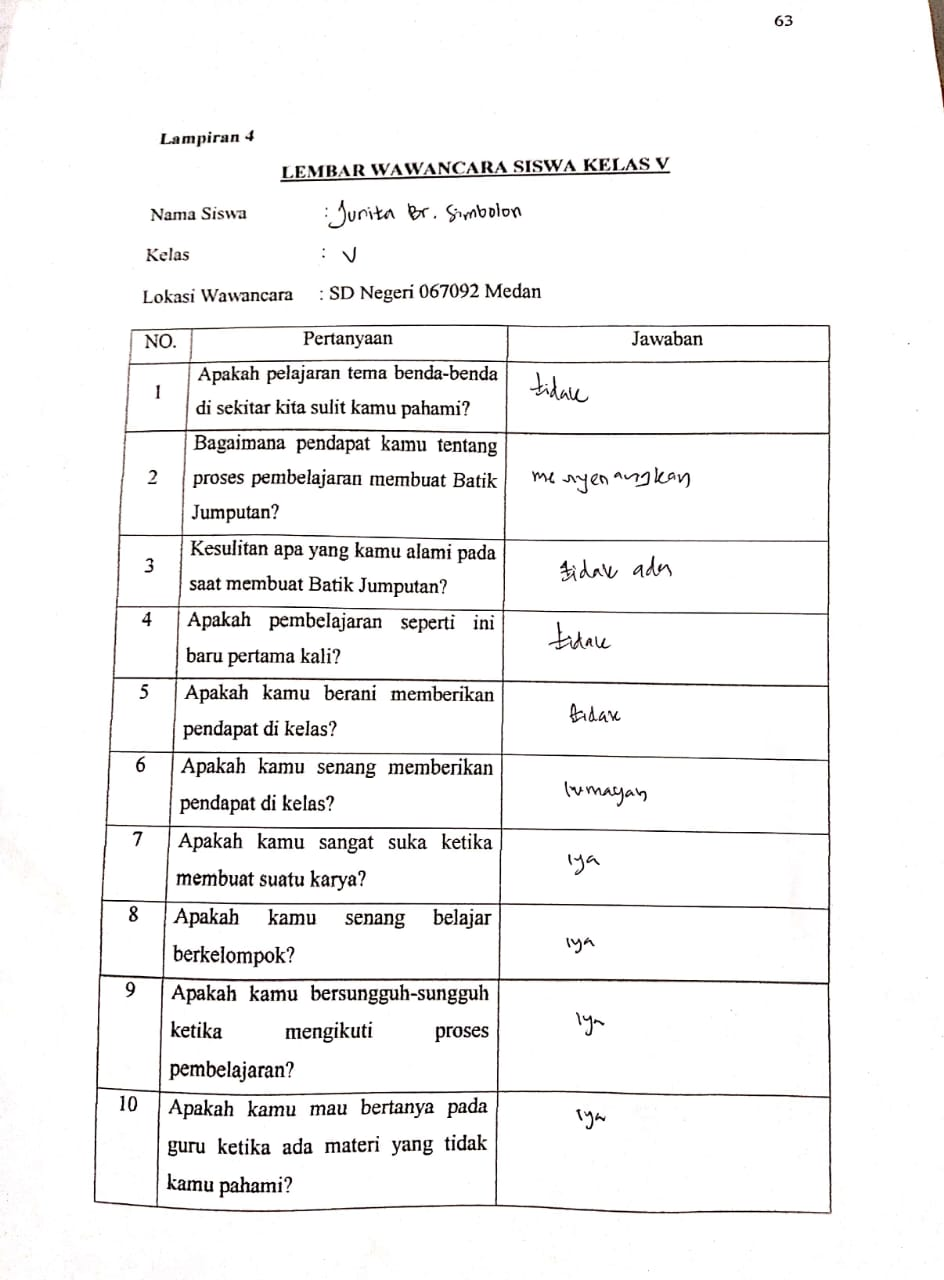 63
Lampiran 4
LEMBAR WAWANCARA SISWA KELAS V
Nama Siswa : Junita Br. Simbolon
Kelas : V
Lokasi Wawancara : SD Negeri 067092 Medan
NO. Pertanyaan Jawaban
1 Apakah pelajaran tema benda-benda
di sekitar kita sulit kamu pahami?
tidak
2 Bagaimana pendapat kamu tentang
proses pembelajaran membuat Batik
Jumputan?
menyenangkan
3 Kesulitan apa yang kamu alami pada
saat membuat Batik Jumputan?
tidak ada
4 Apakah pembelajaran seperti ini
baru pertama kali?
tidak
5 Apakah kamu berani memberikan
pendapat di kelas?
tidak
6 Apakah kamu senang memberikan
pendapat di kelas?
lumayan
7 Apakah kamu sangat suka ketika
membuat suatu karya?
iya
8 Apakah kamu senang belajar
berkelompok?
iya
9 Apakah kamu bersungguh-sungguh
ketika mengikuti proses
pembelajaran?
iya
10 Apakah kamu mau bertanya pada
guru ketika ada materi yang tidak
kamu pahami?
iya